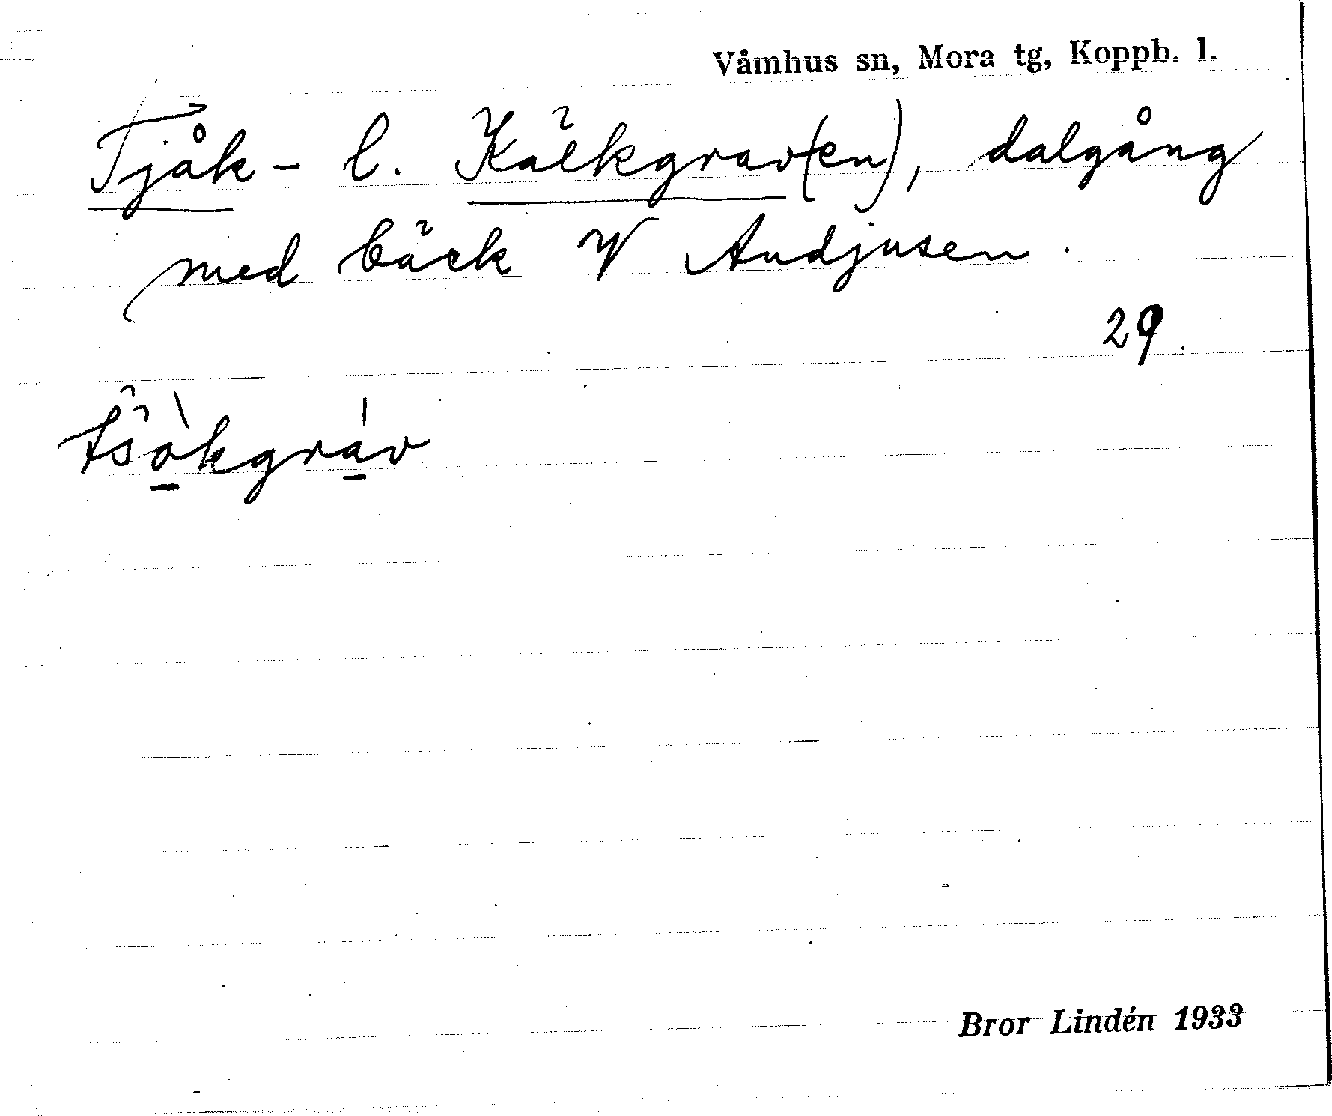 Våmhus sn, Mora tg, Koppb. l.
Tjåk- l. Kälkgrav(en), dalgång
med bäck V Andjusen.
29.
tsòkgráv
Bror Lindén 1933